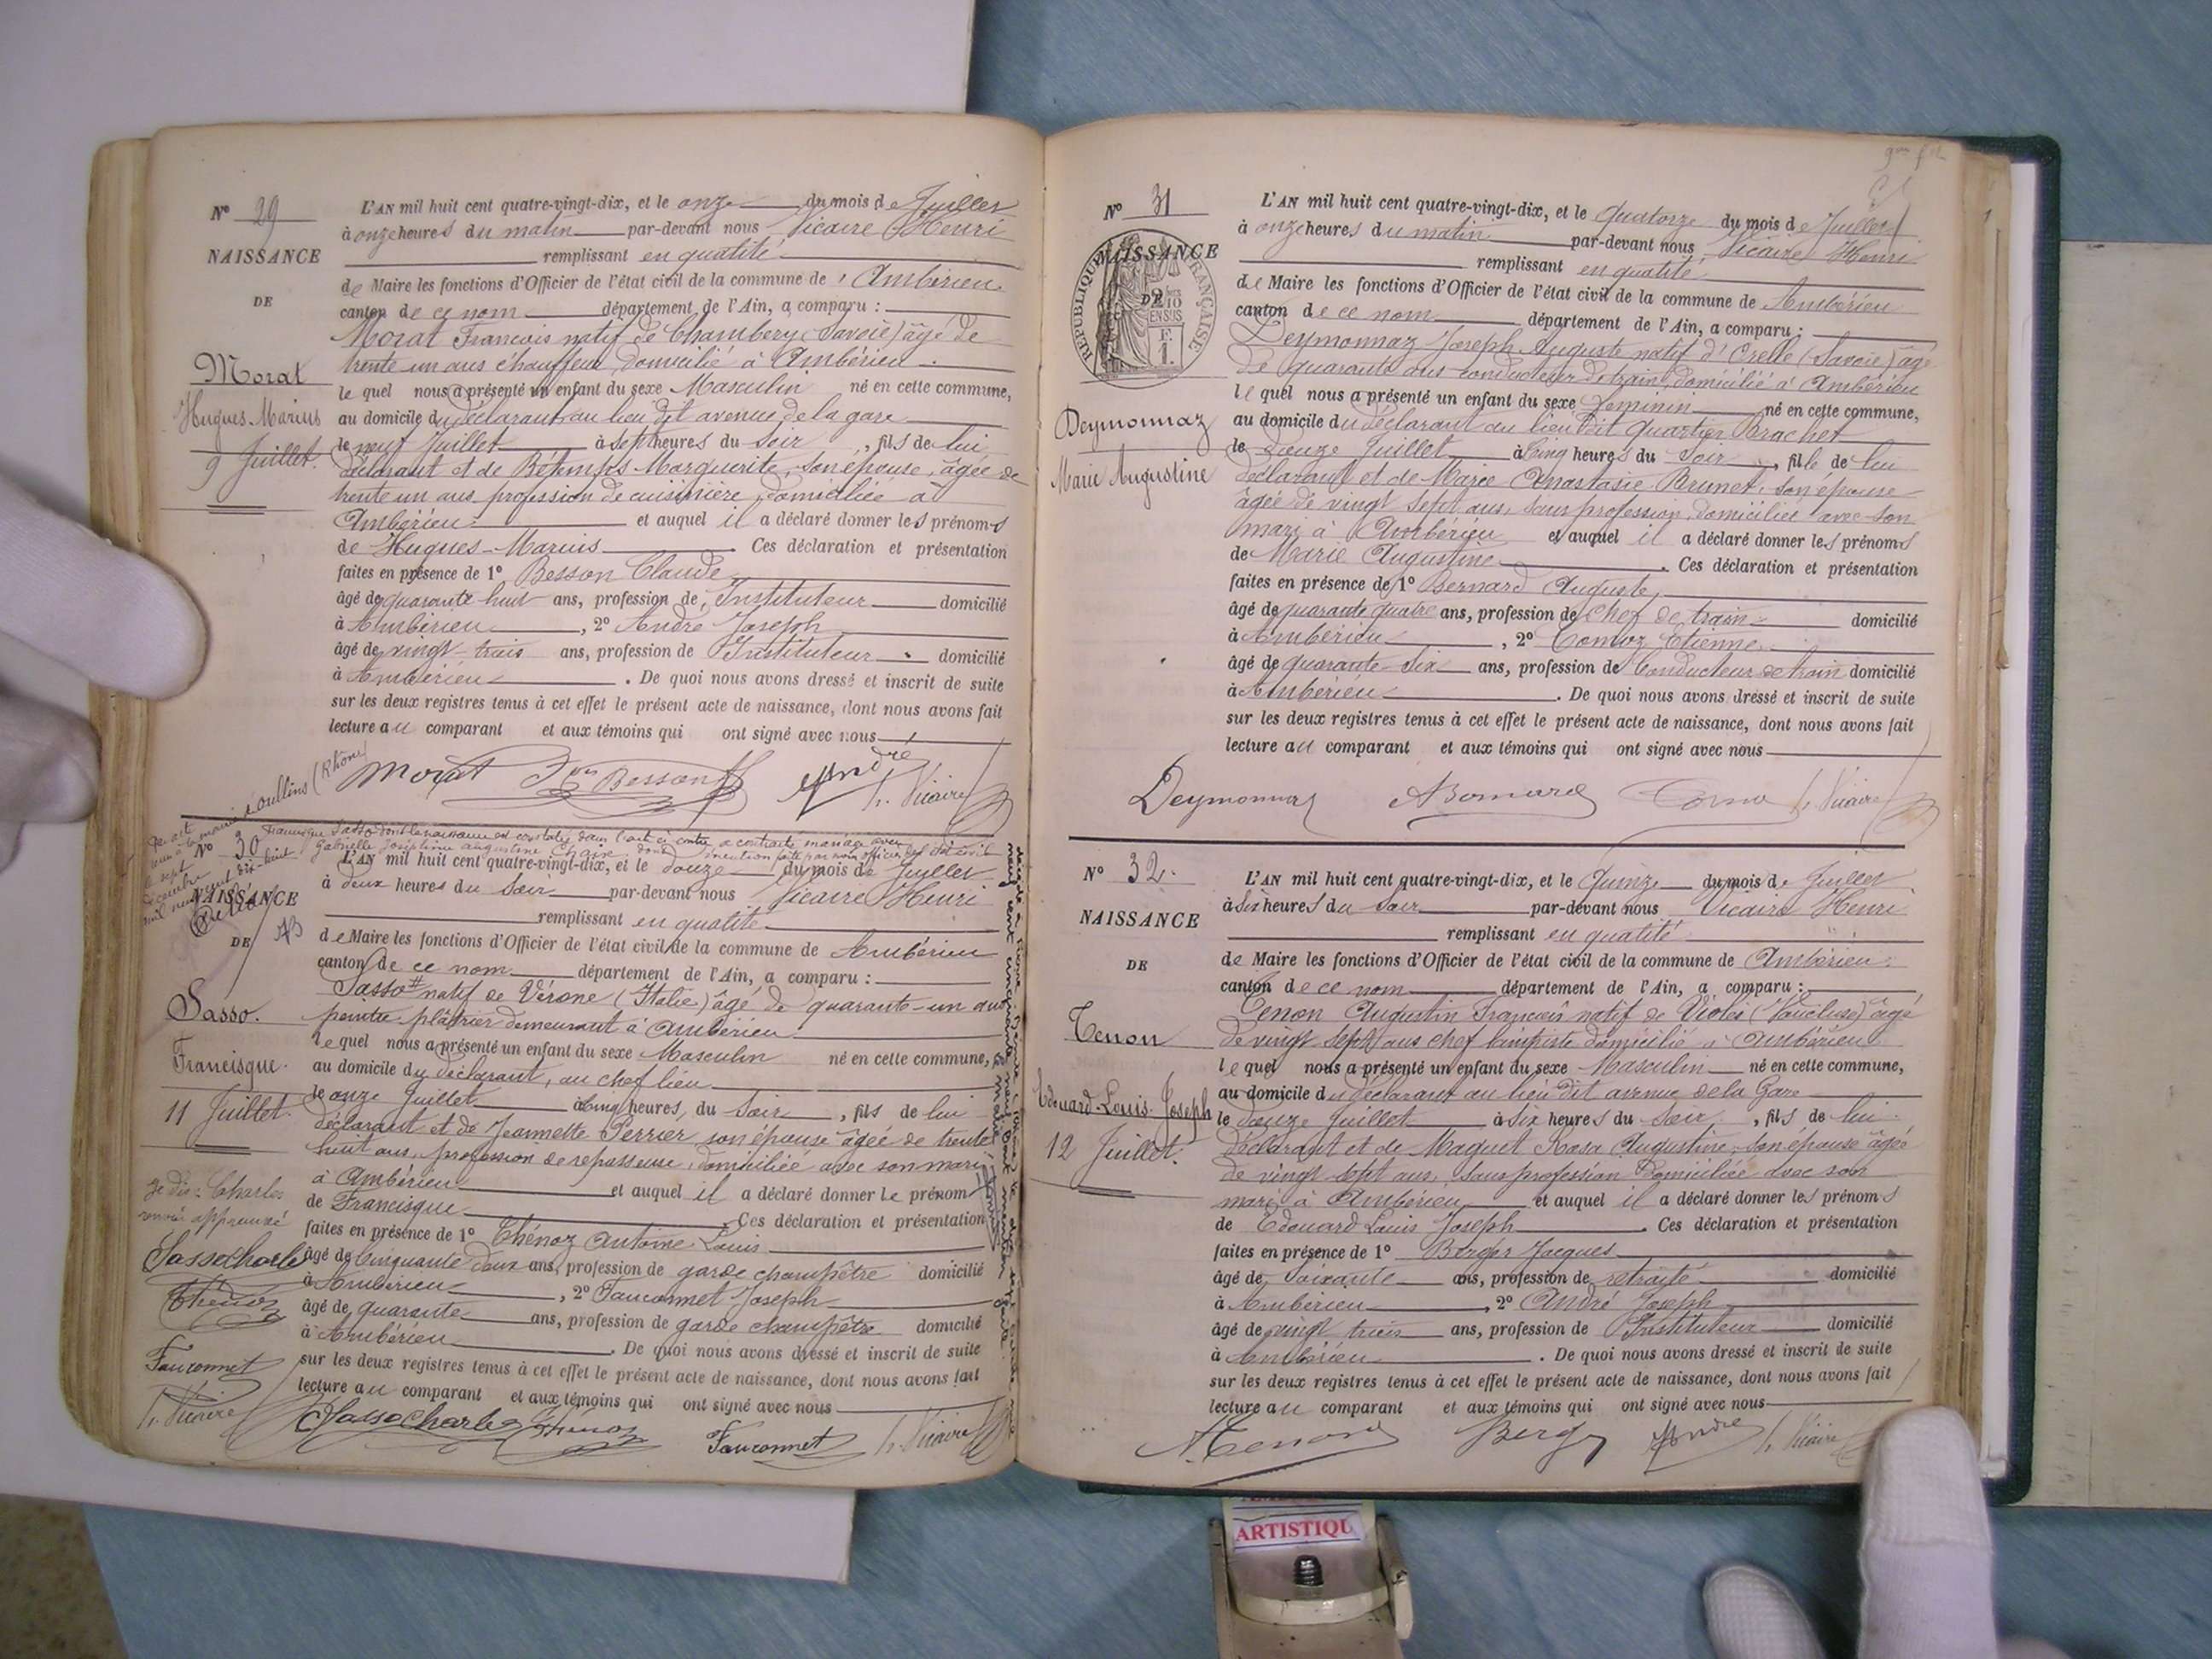 N° 29
NAISSANCE
DE
Morat
Hugues-Marius
9 Juillet.
L'AN mil huit cent quatre-vingt-dix, et le onze du mois de Juillet
à onze heures du matin par-devant nous Vicaire Henri
remplissant en qualité
de Maire les fonctions d'Officier de l'état civil de la commune de Ambérieu
canton de ce nom département de l'Ain, a comparu :
Morat Francois natif de Chambery (Savoie) âgé de
trente un ans chauffeur, domicilié à Ambérieu
le quel nous a présenté un enfant du sexe Masculin né en cette commune,
au domicile du déclarant au lieu dit avenue de la gare
le neuf Juillet à sept heures du soir, fils de lui
déclarant et de Bétemps Marguerite, son épouse, âgée de
trente un ans, profession de cuisinière, domiciliée à
Ambérieu et auquel il a déclaré donner les prénoms
de Hugues-Marius. Ces déclaration et présentation
faites en présence de 1° Besson Claude
âgé de quarante huit ans, profession de Instituteur domicilié
à Ambérieu, 2° André Joseph
âgé de vingt-trois ans, profession de Instituteur domicilié
à Ambérieu. De quoi nous avons dressé et inscrit de suite
sur les deux registres tenus à cet effet le présent acte de naissance, dont nous avons fait
lecture au comparant et aux témoins qui ont signé avec nous
Morat Besson André h. Vicaire
N° 30
NAISSANCE
DE
Sasso.
Francisque.
11 Juillet.
Je dis : Charles
renvoi approuvé
Sasso Charles
Thénoz
Fauconnet
h. Vicaire
Francisque Sasso dont la naissance est constatée dans l'acte ci-contre a contracté mariage avec
Gabrielle Joséphine Augustine
mention faite par nous officier de l'état civil
Oullins (Rhône)
L'AN mil huit cent quatre-vingt-dix, et le douze du mois de Juillet
à deux heures du soir par-devant nous Vicaire Henri
remplissant en qualité
de Maire les fonctions d'Officier de l'état civil de la commune de Ambérieu
canton de ce nom département de l'Ain, a comparu :
Sasso # natif de Vérone (Italie) âgé de quarante-un ans
peintre-plâtrier demeurant à Ambérieu
le quel nous a présenté un enfant du sexe Masculin né en cette commune,
au domicile du déclarant, au chef lieu
le onze Juillet à cinq heures du soir, fils de lui
déclarant et de Jeannette Perrier son épouse âgée de trente
huit ans, profession de repasseuse, domiciliée avec son mari
à Ambérieu et auquel il a déclaré donner le prénom
de Francisque. Ces déclaration et présentation
faites en présence de 1° Thénoz Antoine Louis
âgé de cinquante deux ans, profession de garde champêtre domicilié
à Ambérieu, 2° Fauconnet Joseph
âgé de quarante ans, profession de garde champêtre domicilié
à Ambérieu. De quoi nous avons dressé et inscrit de suite
sur les deux registres tenus à cet effet le présent acte de naissance, dont nous avons fait
lecture au comparant et aux témoins qui ont signé avec nous
Sasso Charles Thénoz Fauconnet h. Vicaire
N° 31
NAISSANCE
DE
RÉPUBLIQUE FRANÇAISE
Deymonnaz
Marie Augustine
L'AN mil huit cent quatre-vingt-dix, et le Quatorze du mois de Juillet
à onze heures du matin par-devant nous Vicaire Henri
remplissant en qualité
de Maire les fonctions d'Officier de l'état civil de la commune de Ambérieu
canton de ce nom département de l'Ain, a comparu :
Deymonnaz Joseph-Auguste natif d'Orelle (Savoie) âgé
de quarante ans conducteur de train, domicilié à Ambérieu
le quel nous a présenté un enfant du sexe Féminin né en cette commune,
au domicile du déclarant au lieu dit quartier Brachet
le douze Juillet à cinq heures du soir, fille de lui
déclarant et de Marie Anastasie Brunet, son épouse
âgée de vingt sept ans, sans profession, domiciliée avec son
mari à Ambérieu et auquel il a déclaré donner les prénoms
de Marie Augustine. Ces déclaration et présentation
faites en présence de 1° Bernard Auguste
âgé de quarante quatre ans, profession de chef de train domicilié
à Ambérieu, 2° Comoz Etienne
âgé de quarante-six ans, profession de Conducteur de train domicilié
à Ambérieu. De quoi nous avons dressé et inscrit de suite
sur les deux registres tenus à cet effet le présent acte de naissance, dont nous avons fait
lecture au comparant et aux témoins qui ont signé avec nous
Deymonnaz ABernard h. Vicaire
N° 32.
NAISSANCE
DE
Tenon
Edouard-Louis-Joseph
12 Juillet.
L'AN mil huit cent quatre-vingt-dix, et le Quinze du mois de Juillet
à six heures du soir par-devant nous Vicaire Henri
remplissant en qualité
de Maire les fonctions d'Officier de l'état civil de la commune de Ambérieu
canton de ce nom département de l'Ain, a comparu :
Tenon Augustin François natif de Violès (Vaucluse) âgé
de vingt sept ans chef lampiste domicilié à Ambérieu
le quel nous a présenté un enfant du sexe Masculin né en cette commune,
au domicile du déclarant au lieu dit avenue de la Gare
le douze Juillet à six heures du soir, fils de lui
déclarant et de Maguet Rosa Augustine, son épouse âgée
de vingt sept ans, sans profession domiciliée avec son
mari à Ambérieu et auquel il a déclaré donner les prénoms
de Edouard Louis Joseph. Ces déclaration et présentation
faites en présence de 1° Berger Jacques
âgé de soixante ans, profession de retraité domicilié
à Ambérieu, 2° André Joseph
âgé de vingt trois ans, profession de Instituteur domicilié
à Ambérieu. De quoi nous avons dressé et inscrit de suite
sur les deux registres tenus à cet effet le présent acte de naissance, dont nous avons fait
lecture au comparant et aux témoins qui ont signé avec nous
ATenon Berger André h. Vicaire
ARTISTIQU